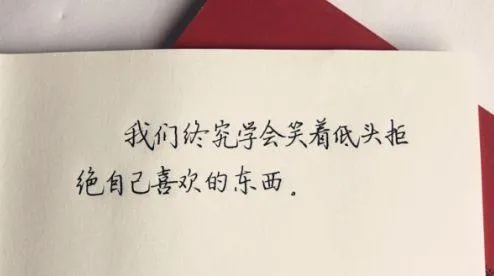 我们终究学会笑着低头拒
绝自己喜欢的东西.